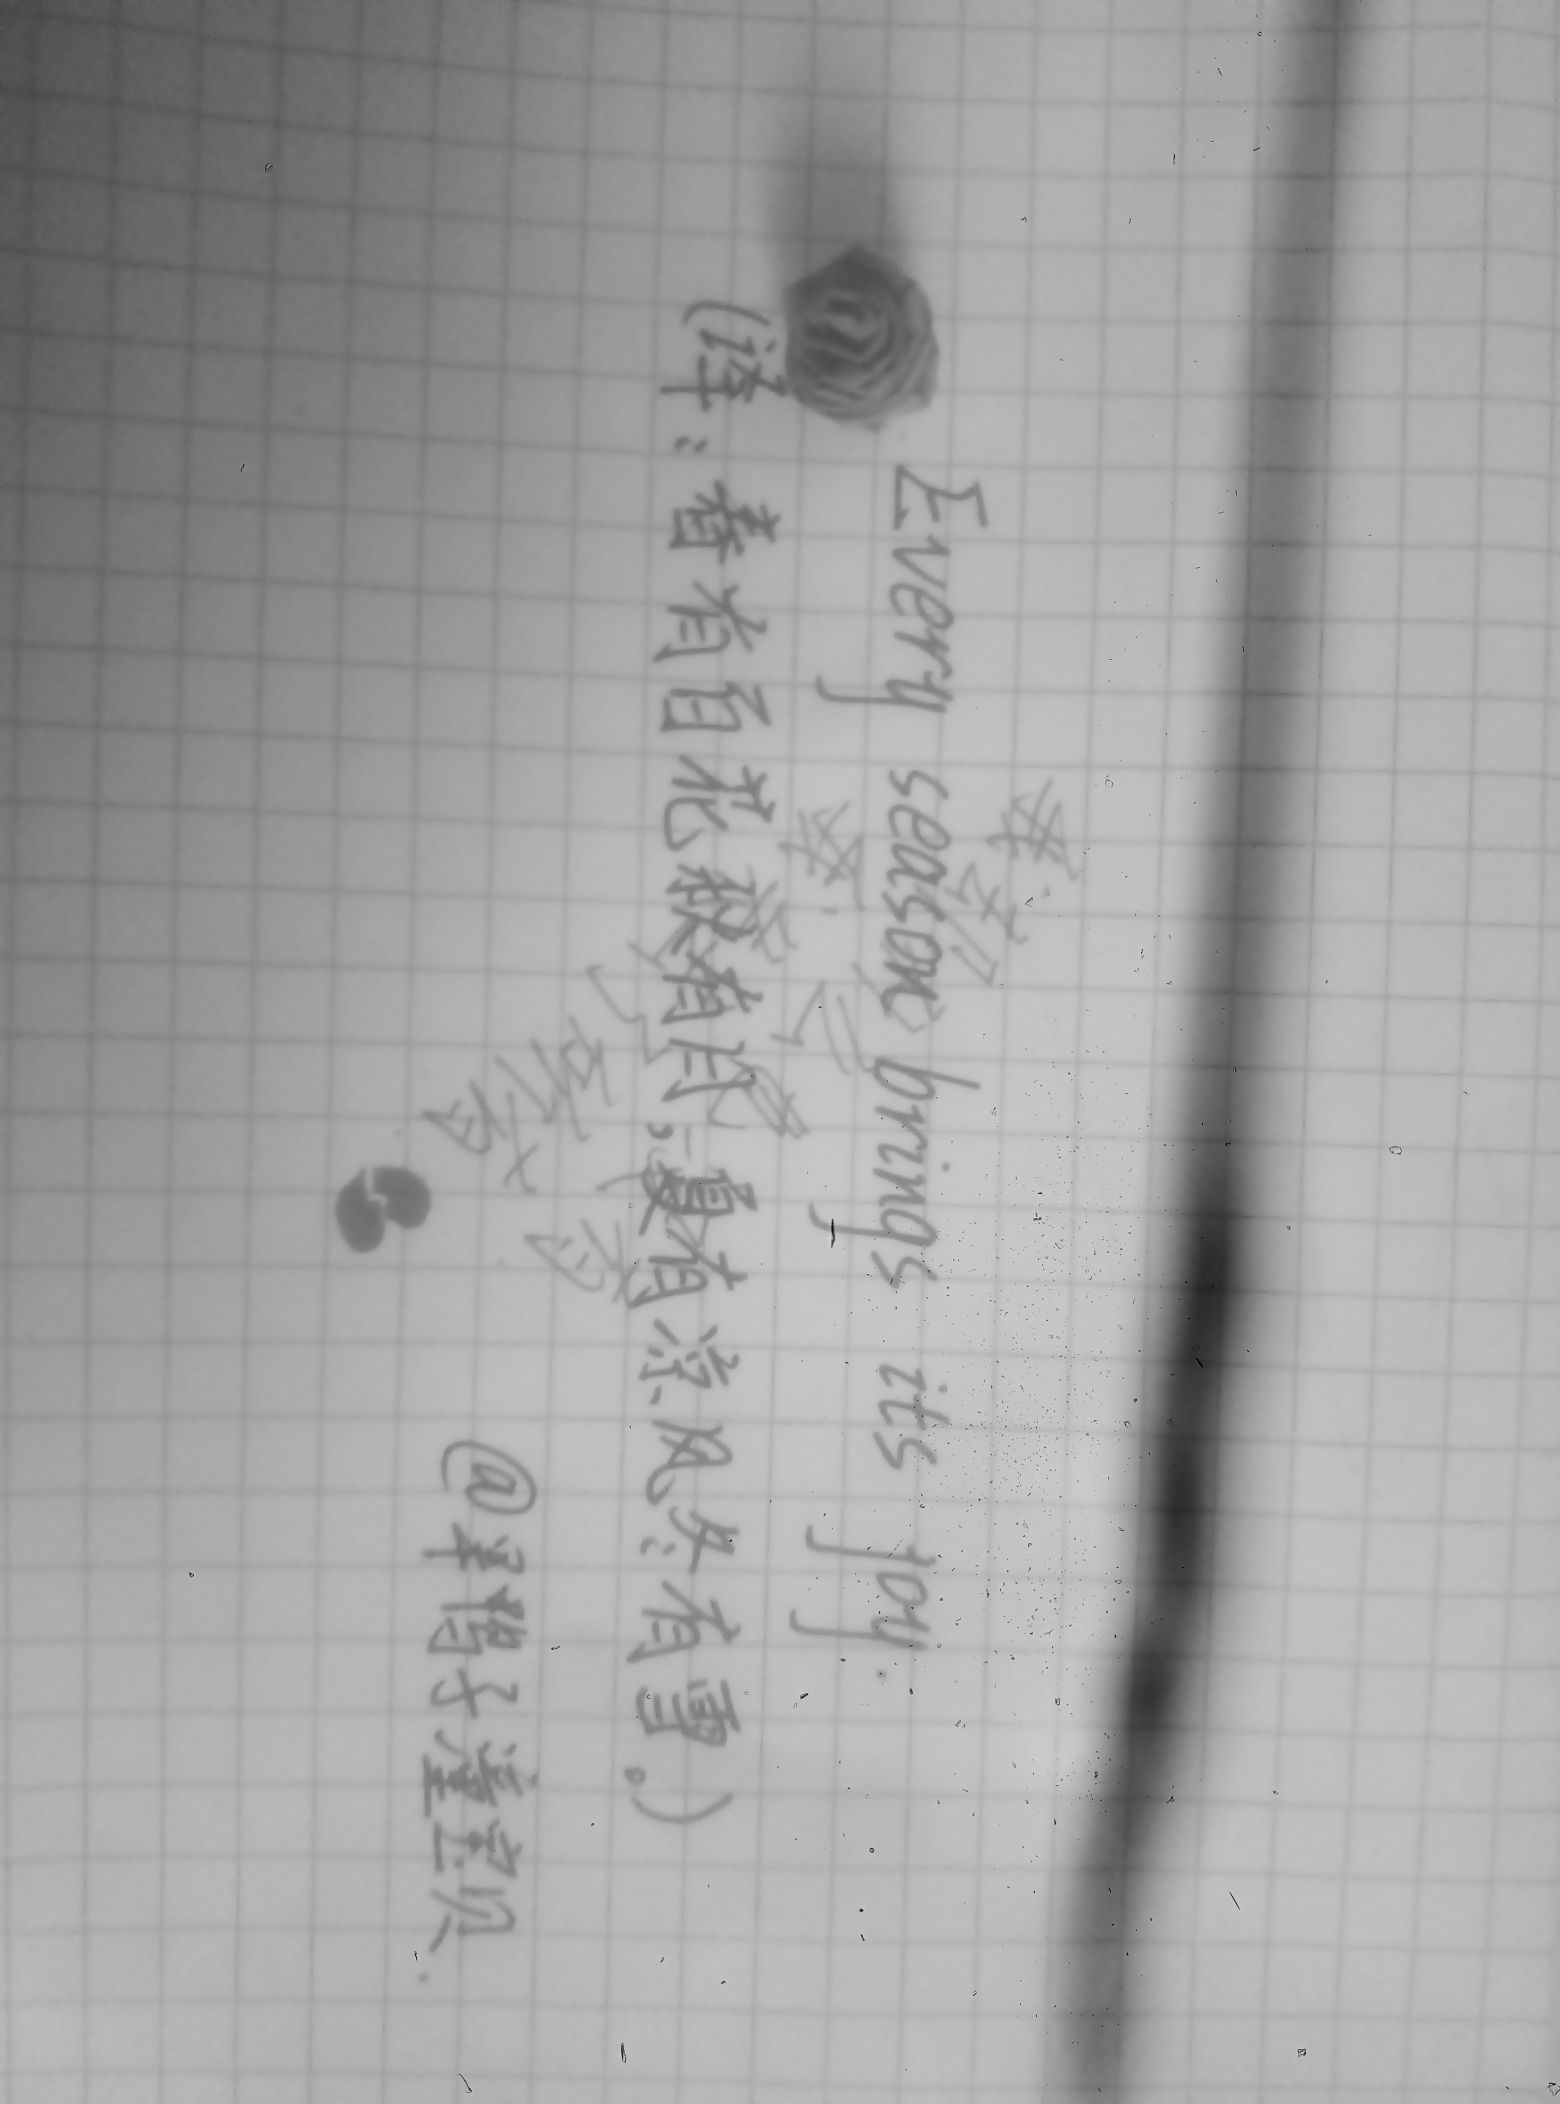 Every season brings its joy.
(译:春有百花秋有月,夏有凉风冬有雪。)
@ 宝贝